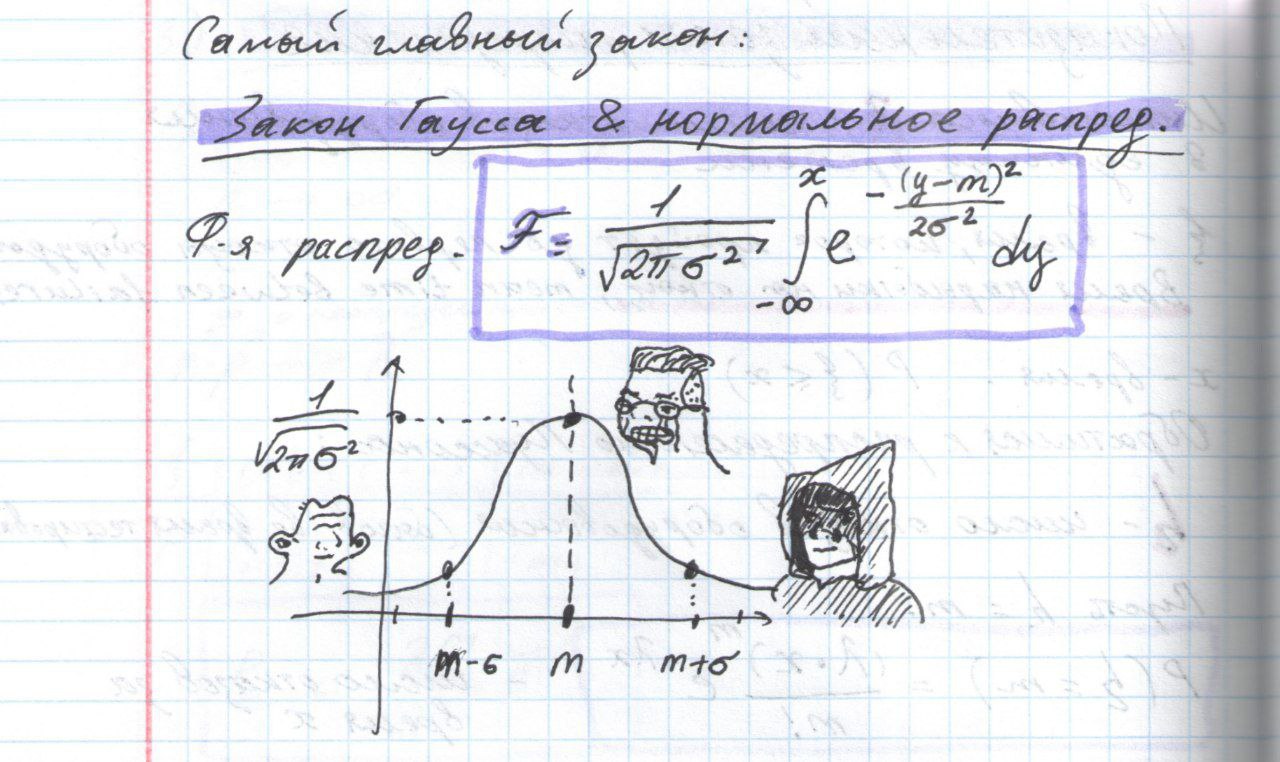 Самый главный закон:
Закон Гаусса & нормальное распред.
Ф-я распред. F = 1/√(2πσ²) ∫_{-∞}^{x} e^{-(y-m)²/2σ²} dy
1/√(2πσ²)
m-σ m m+σ